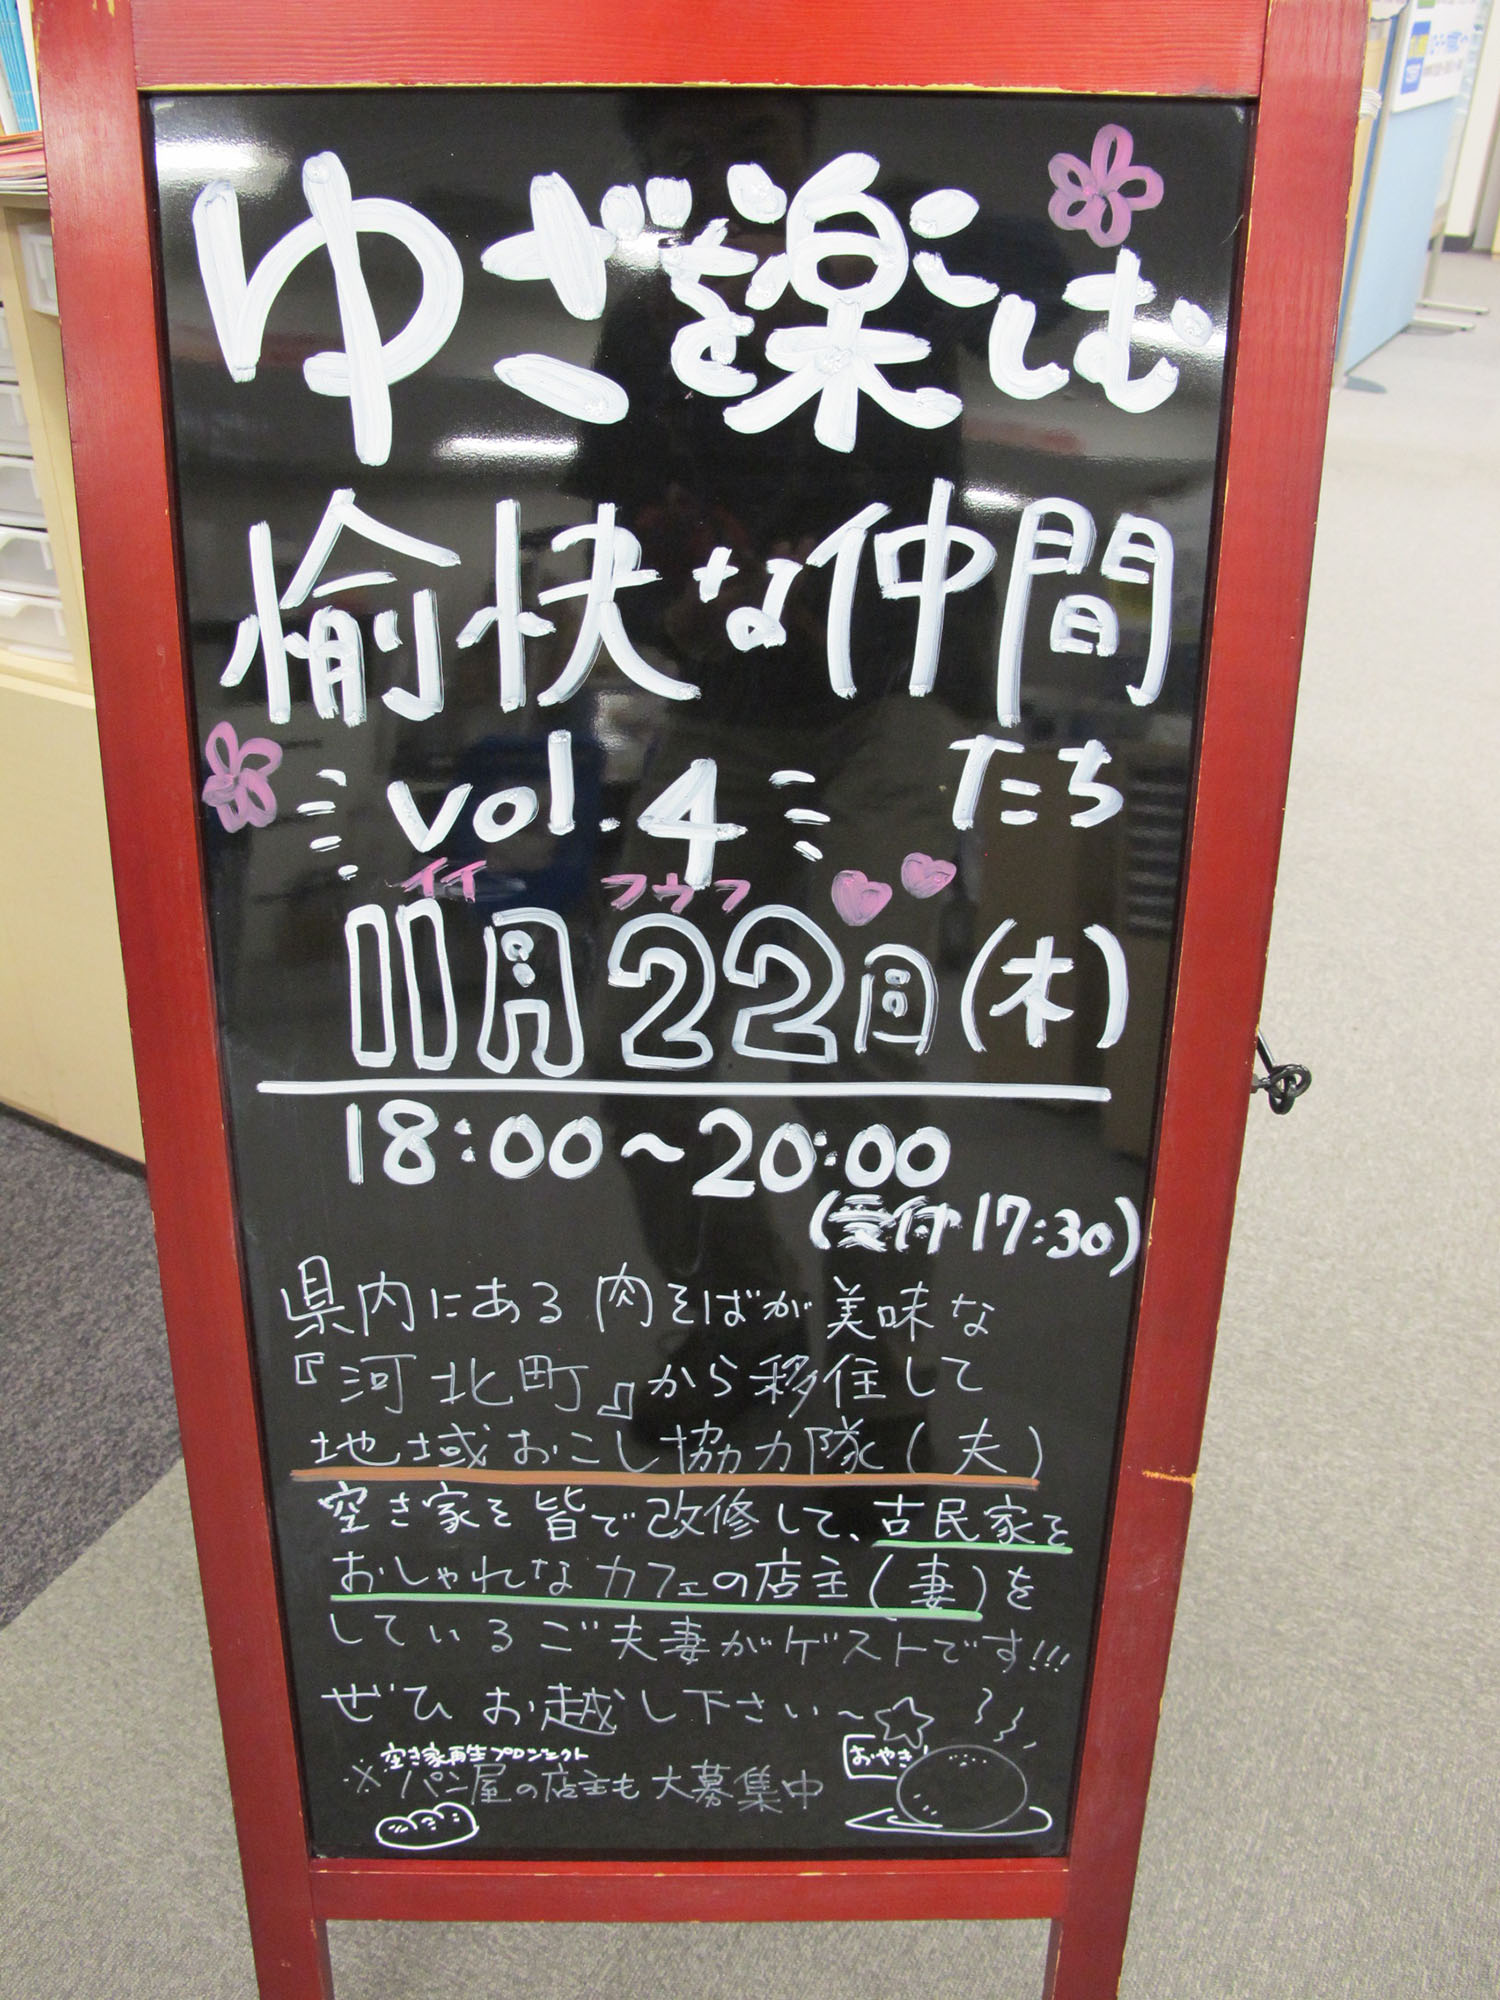 ゆざを楽しむ
愉快な仲間
たち
vol.4
イイ フウフ
11月22日(木)
18:00~20:00
(受付17:30)
県内にある肉そばが美味な
『河北町』から移住して
地域おこし協力隊(夫)
空き家を皆で改修して、古民家を
おしゃれなカフェの店主(妻)を
しているご夫妻がゲストです!!!
ぜひお越し下さい~☆
空き家再生プロジェクト
※パン屋の店主も大募集中
おやき